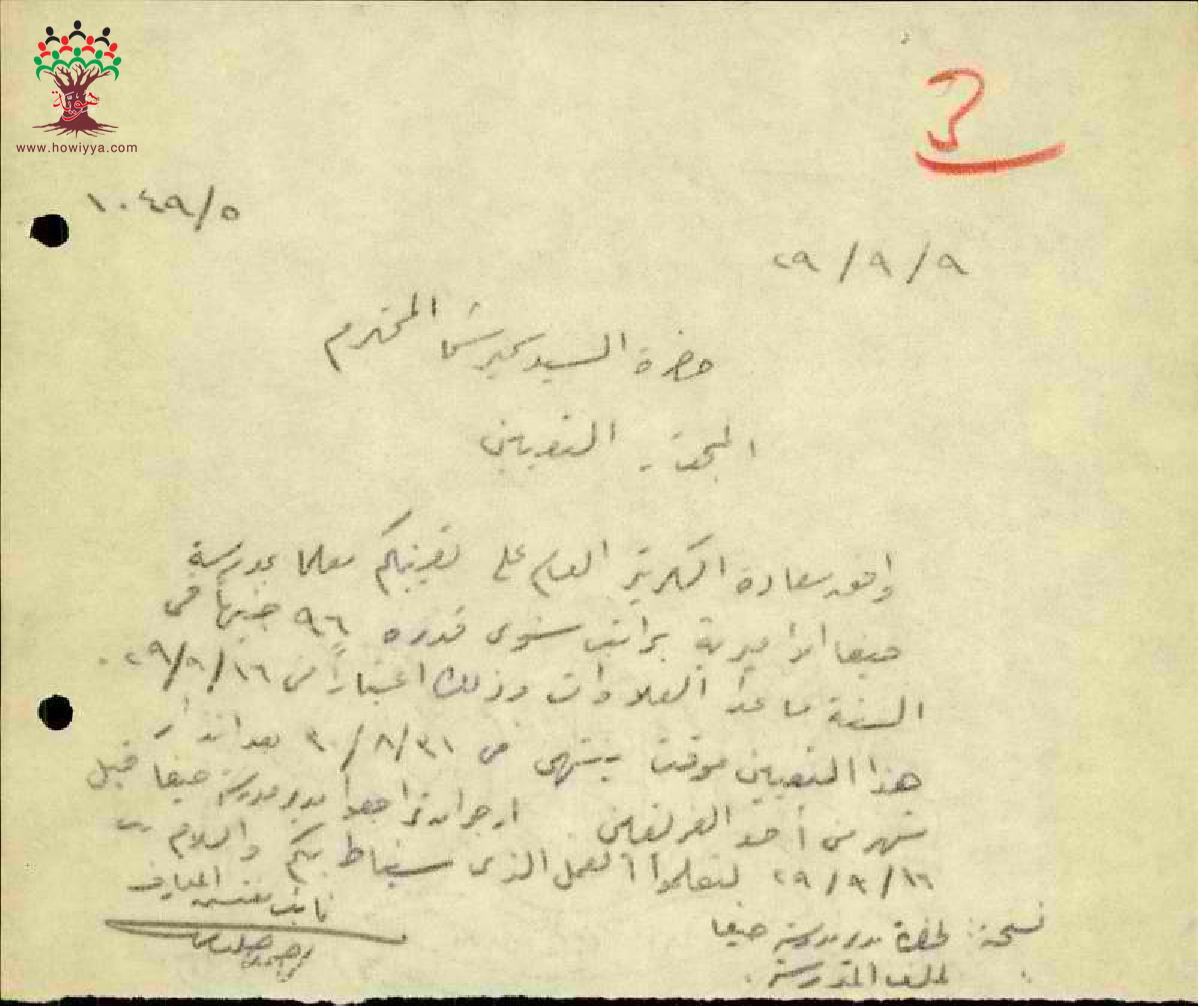 هوية
www.howiyya.com
١٠٤٩/٥
٢٩/٩/٩
حضرة السيد المحترم
التعيين
وافق سعادة السكرتير العام على تعيينكم معلما بمدرسة
حيفا الاميرية براتب سنوي قدره ٩٦ جنيهاً في
السنة ما عدا العلاوات وذلك اعتباراً من ٢٩/٩/١٦.
هذا التعيين موقت ينتهي في ٣٠/٨/٣١ بعد انذار
شهر من أحد الفريقين. ارجو ان تراجعوا مدير مدرسة حيفا قبل
٢٩/٩/١٦ لتعلموا العمل الذي سيناط بكم والسلام
نائب مفتش المعارف
نسخة: لحضرة مدير مدرسة حيفا
لملف المدرسة.